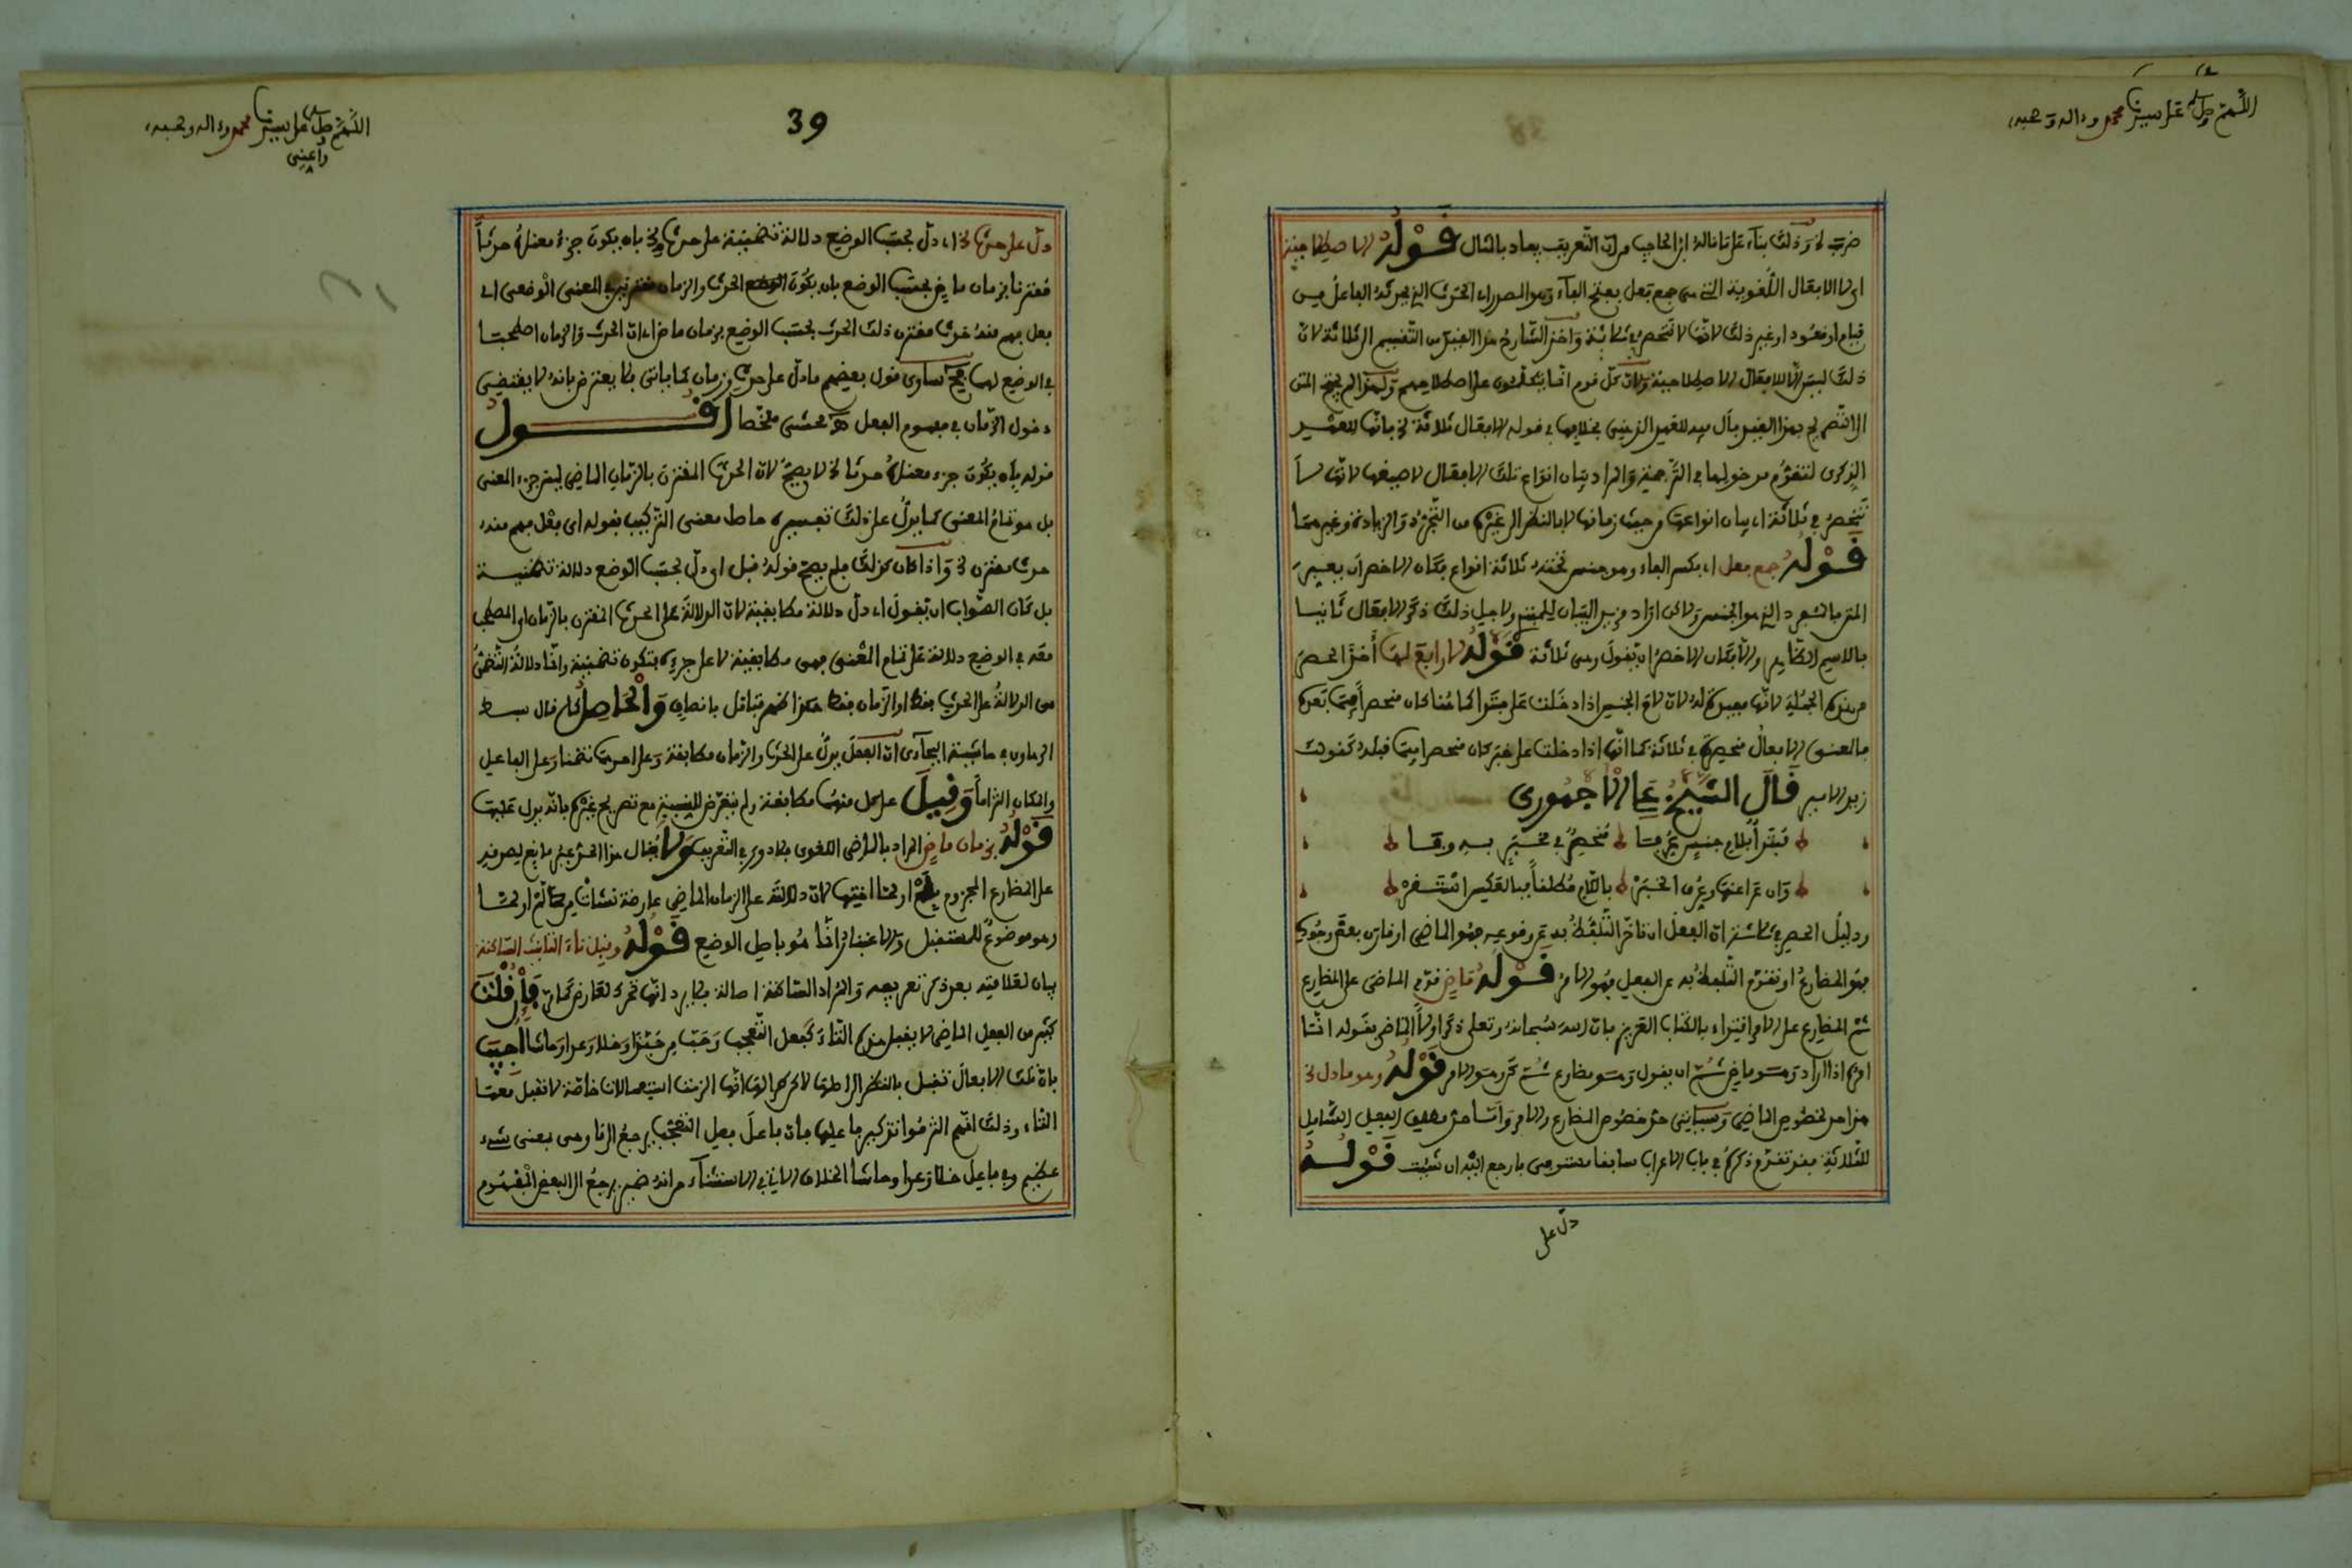 اللهم صل على سيدنا محمد وءاله وصحبه
ضرب الخ وذلك بناء على ما قاله ابن الحاجب من ان التعريف يفاد بالمثال قوله الاصطلاحية
اى لا الافعال اللغوية التى هى جمع فعل بفتح الفاء وهو المصدر اى الحدث الذى يحدثه الفاعل من
قيام او قعود او غير ذلك لانها لا تنحصر فى ثلاثة واخذ الشارح هذا القيد من التقسيم الى الثلاثة لان
ذلك ليس الا للافعال الاصطلاحية ولان كل قوم انما يتكلمون على اصطلاحهم ولهذا لم يحتج المتن
الى التصريح بهذا القيد بال
الذكرى لتقدم مدخولها فى الترجمة والمراد بيان انواع تلك الافعال لا صيغها لانها لا
تنحصر فى ثلاثة اى بيان انواعها من حيث زمانها لا بالنظر الى غيره من التجرد والزيادة وغيرهما
قوله جمع فعل اى بكسر الفاء وهو جنس تحته ثلاثة انواع فكان الاخصر ان يعبر
المتن بالمفرد الذى هو الجنس ولاكن اراد مزيد البيان للمبتدى ولاجل ذلك ذكر الافعال ثانيا
بالاسم الظاهر والا فكان الاخصر ان يقول وهى ثلاثة قوله لا رابع لها أخذ الحصر
من هذه الجملة لانها مفيدة له لان لام الجنس اذا دخلت على مبتدا كما هنا كان منحصرا فيما بعده
فالمعنى الافعال منحصرة فى ثلاثة كما انها اذا دخلت على خبر كان منحصرا فيما قبله كقولك
زيد الامير قال الشيخ عج الاجهورى
مبتدأ بلام جنس عرفا منحصر فى مخبر به وفا
وان عرا عنها وعرف الخبر باللام مطلقا فبالعكس استقر
ودليل الحصر فى الثلاثة ان الفعل ان تاخر التلفظ به عن وقوعه فهو الماضى او قارن بعض وجوده
فهو المضارع او تقدم التلفظ به عن الفعل فهو الامر قوله ماض قدم الماضى على المضارع
ثم المضارع على الامر اقتداء بالكتاب العزيز فان الله سبحانه وتعلى ذكر اولا الماضى بقوله انما
امره اذا اراد وهو ماض ثم ان يقول وهو مضارع ثم كن وهو الامر قوله وهو ما دل الخ
هذا حد لخصوص الماضى وسياتى حد خصوص المضارع والامر واما حد مطلق الفعل الشامل
للثلاثة فقد تقدم ذكره فى باب الاعراب سابقا مستوفى فارجع اليه ان شئت قوله
دل على
39
اللهم صل على سيدنا محمد وءاله وصحبه
واعنى
دل على حدث الخ اى دل بحسب الوضع دلالة تضمنية على حدث الخ بان يكون جزء معناه حدثا
مقترنا بزمان ماض بحسب الوضع بان يكون الحدث والزمان مقترنين فى المعنى الوضعى اى
فعل يفهم منه حدث مقترن ذلك الحدث بحسب الوضع بزمان ماض اى ان الحدث والزمان اصطحبا
فى الوضع لهما فهو يساوى قول بعضهم ما دل على حدث وزمان كما ياتى فلا يعترض بانه لا يقتضى
دخول الزمان فى مفهوم الفعل هـ محشى ملخصا اقول
قوله بان يكون جزء معناه حدثا الخ لا يصح لان الحدث المقترن بالزمان الماضى ليس جزء المعنى
بل هو تمام المعنى كما يدل على ذلك تفسيره حاصل معنى التركيب بقوله اى فعل يفهم منه
حدث مقترن الخ واذا كان كذلك فلم يصح قوله قبل اى دل بحسب الوضع دلالة تضمنية
بل كان الصواب ان يقول اى دل دلالة مطابقية لان الدلالة على الحدث المقترن بالزمان او المصطحب
معه فى الوضع دلالة على تمام المعنى فهى مطابقية لا على جزءه فتكون تضمنية وانما دلالة التضمن
هى الدلالة على الحدث فقط او الزمان فقط هكذا ظهر فتامل بانصاف والحاصل كما قال
الرهاوى فى حاشية ان الفعل يدل على الحدث والزمان مطابقة وعلى احدهما تضمنا وعلى الفاعل
والمكان التزاما وقيل على كل منهما مطابقة ولم يتعرض للنسبة مع تصريح غيره بانه يدل عليها
قوله بزمان ماض المراد بالماضى اللغوى فلا دور فى التعريف ولا يقال هذا الحد غير مانع لصدقه
على المضارع المجزوم بلم او لما اختها لان دلالته على الزمان الماضى عارضة نشأت من لم او لما
وهو موضوع للمستقبل والاعتبار انما هو باصل الوضع قوله وقبل تاء التانيث الساكنة
بيان لعلامته بعد ذكر تعريفه والمراد الساكنة اصالة فلا يرد انها تحرك لعارض فإن قلت
كثير من الفعل الماضى لا يقبل هذه التاء كفعل التعجب وحب من حبذا وخلا وعدا وحاشا أجيب
بان تلك الافعال تقبل بالنظر الى اصلها لاكن انها الزمت استعمالات خاصة لا تقبل معها
التاء وذلك انهم التزموا تذكير فاعلها فان فاعل فعل التعجب يرجع الى ما وهى بمعنى شىء
عظيم وفى فاعل خلا وعدا وحاشا الخلاف الاتى فى الاستثناء من انه ضمير يرجع الى البعض المفهوم